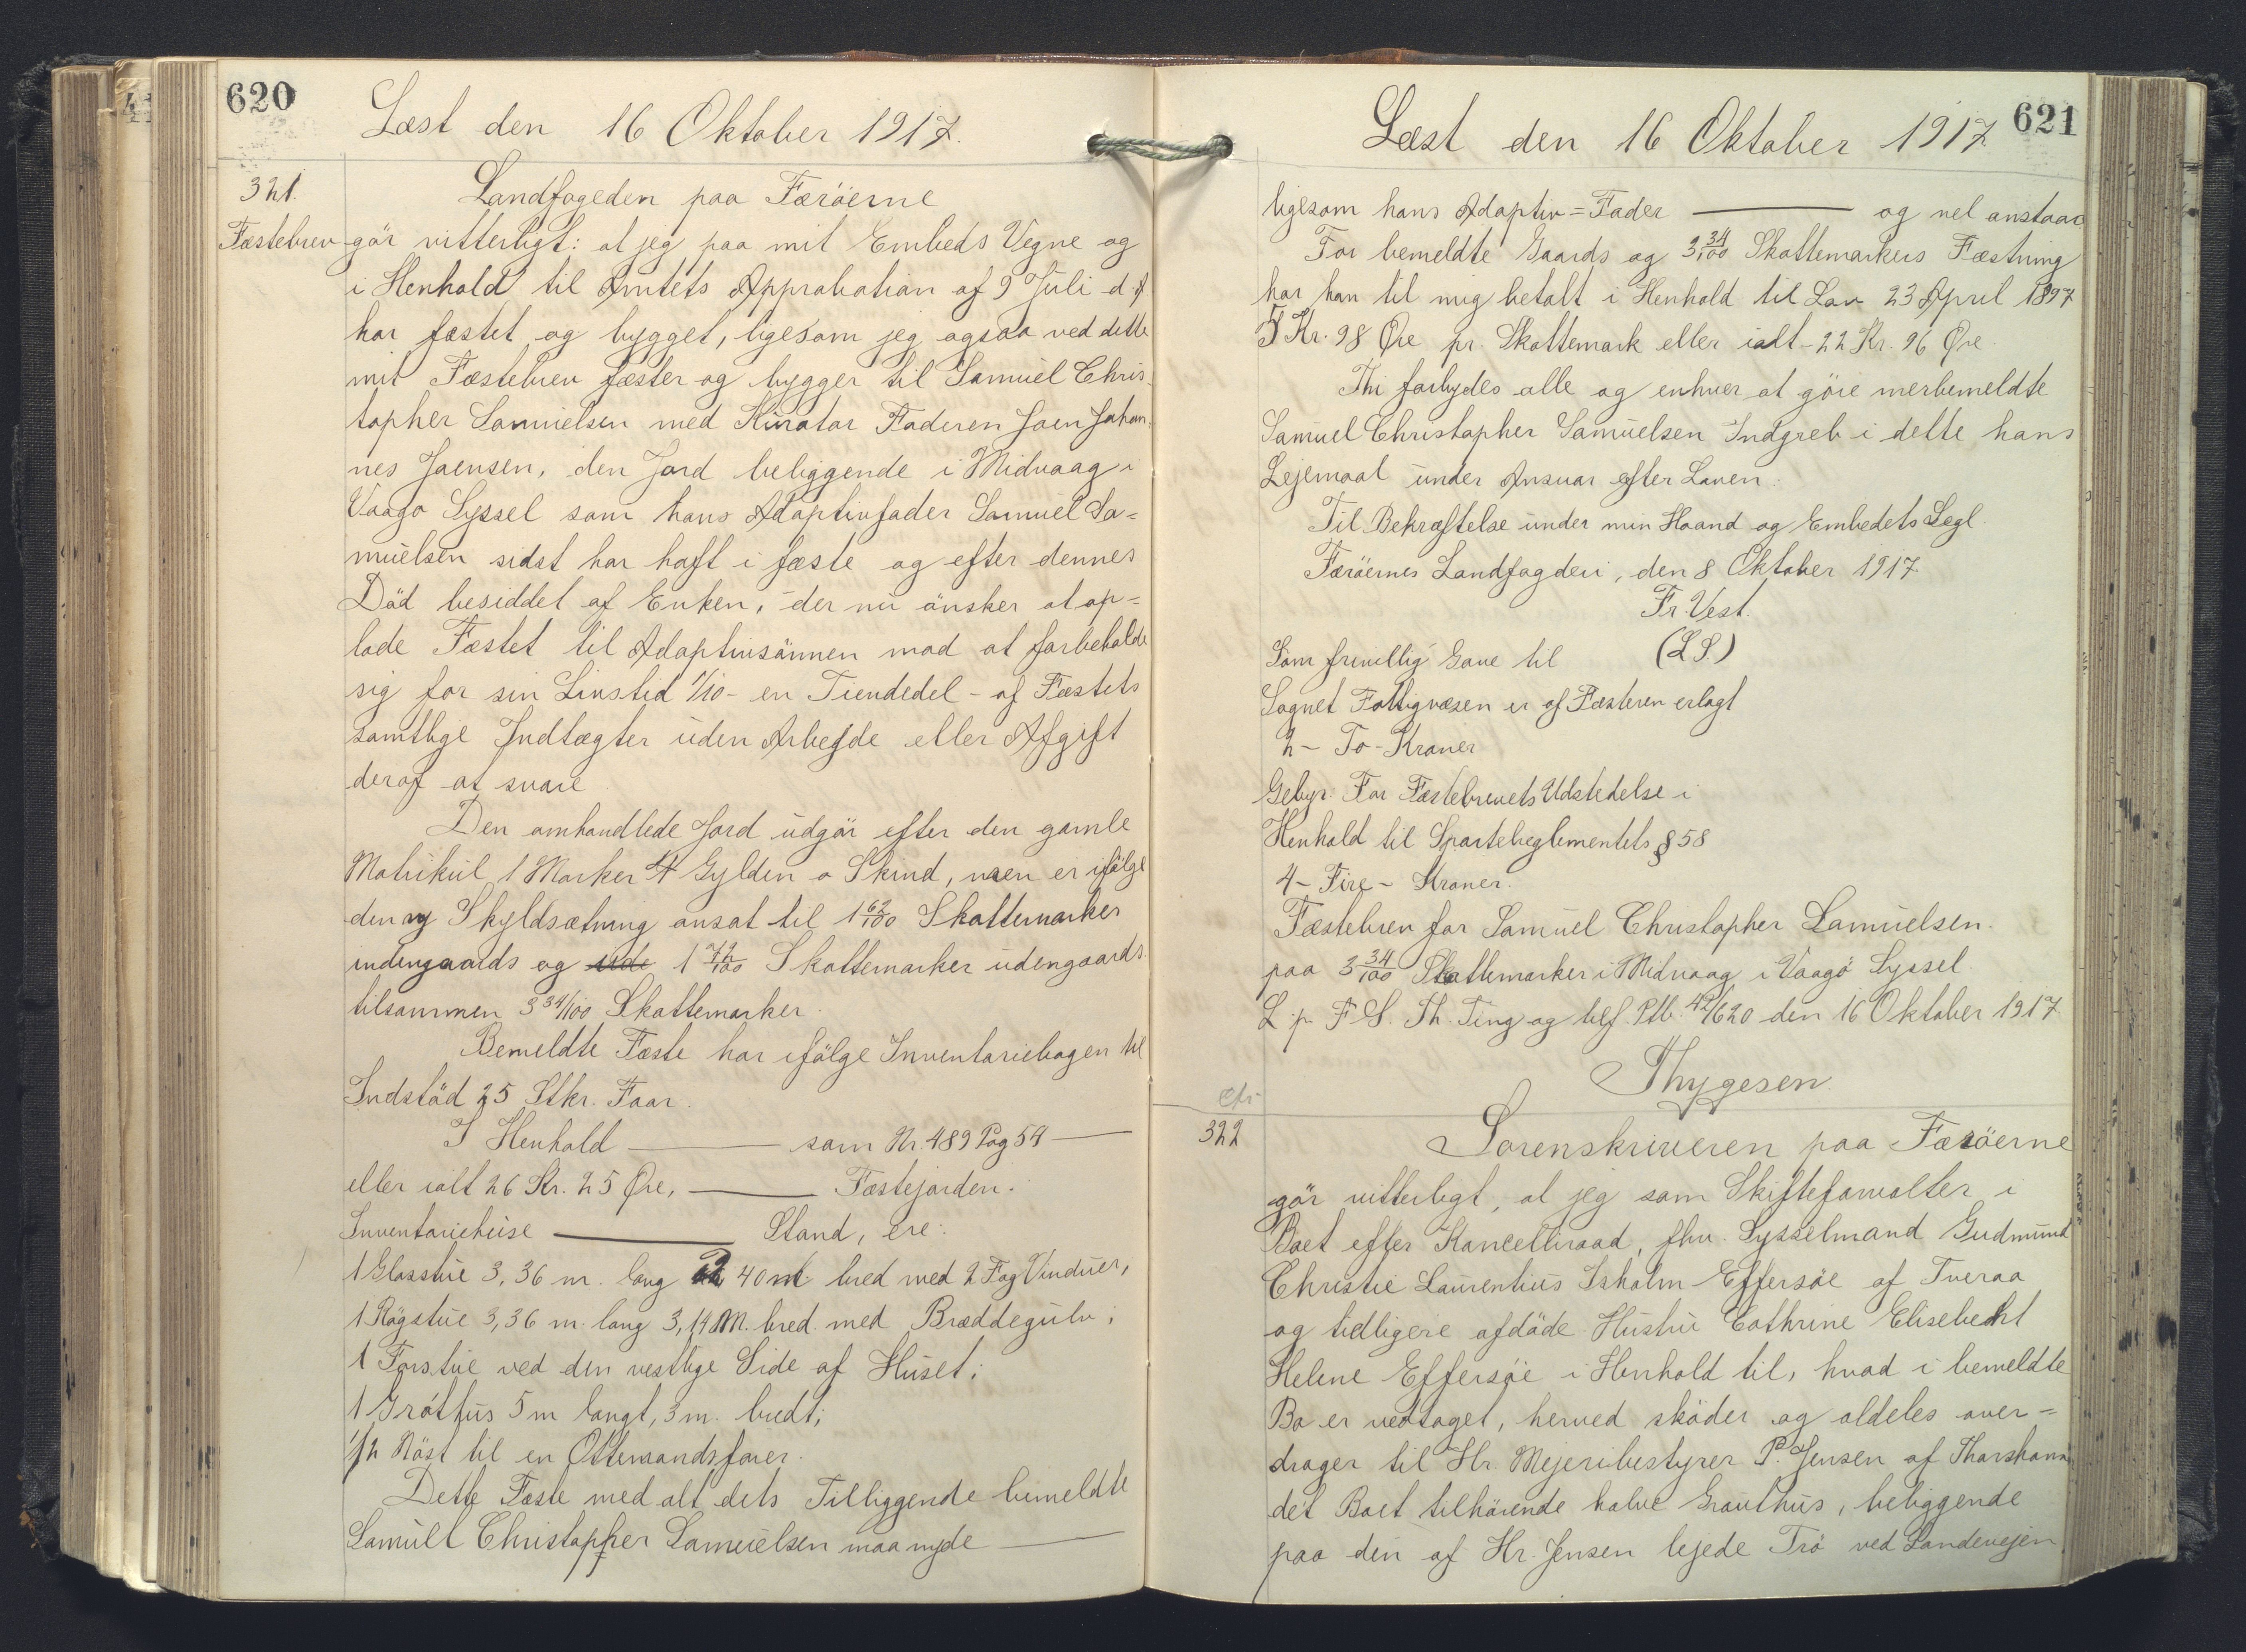 620
Læst den 16 Oktober 1917.
321.
Landfogeden paa Færöerne
Fæstebrev
gör vitterligt: at jeg paa mit Embeds Vegne og
i Henhold til Amtets Approbation af 9 Juli d. A
har fæstet og bygget, ligesom jeg ogsaa ved dette
mit Fæstebrev fæster og bygger til Samuel Chris-
topher Samuelsen med Kurator Faderen Joen Johan-
nes Joensen, den Jord beliggende i Midvaag i
Vaagö Syssel som hans Adoptivfader Samuel Sa=
muelsen sidst har haft i fæste og efter dennes
Död besiddet af Enken, der nu önsker at op=
lade Fæstet til Adoptivsönnen mod at forbeholde
sig for sin Livstid 1/10 - en Tiendedel - af Fæstets
samtlige Indtægter uden Arbejde eller Afgift
deraf at svare
Den omhandlede Jord udgör efter den gamle
Matrikul 1 Marker 4 Gylden o Skind, men er ifölge
den ny Skyldsætning ansat til 1 62/100 Skattemarker
indengaards og ude 1 72/100 Skattemarker udengaards
tilsammen 3 34/100 Skattemarker.
Bemeldte Fæste har ifölge Inventariebogen til
Indstöd 25 Stkr. Faar.
I Henhold ——— som Nr. 489 Pag 54 ———
eller ialt 26 Kr. 25 Øre, ——— Fæstejorden.
Inventariehuse ——— Stand, ere:
1 Glasstue 3,36 m. lang 2 40 m bred med 2 Fag Vinduer,
1 Rögstue 3,36 m. lang 3,14 M. bred med Bræddegulv;
1 Forstue ved den vestlige Side af Huset;
1 Gróthus 5 m langt, 3 m. bredt;
1/2 Nöst til en Ottemandsfarer.
Dette Fæste med alt dets Tilliggende bemeldte
Samuel Christopher Samuelsen maa nyde ———
621
Læst den 16 Oktober 1917
ligesom hans Adoptiv=Fader ——— og vel anstaar
For bemeldte Gaards og 3 34/100 Skattemarkers Fæstning
har han til mig betalt i Henhold til Lov 23 April 1897
7 Kr. 98 Øre pr. Skattemark eller ialt - 22 Kr. 96 Øre.
Thi forbydes alle og enhver at göre merbemeldte
Samuel Christopher Samuelsen Indgreb i dette hans
Lejemaal under Ansvar efter Loven.
Til Bekræftelse under min Haand og Embedets Segl
Færöernes Landfogderi, den 8 Oktober 1917.
Fr. Vest.
(L S.)
Som frivillig Gave til
Sognet Fattigvæsen er af Fæsteren erlagt
2 - To - Kroner
Gebyr. For Fæstebrevets Udstedelse i
Henhold til Sportelreglementets § 58
4 - Fire - Kroner.
Fæstebrev for Samuel Christopher Samuelsen.
paa 3 34/100 Skattemarker i Midvaag i Vaagö Syssel
L. p. F S. Th. Ting og tilf. Ptb. 4/620 den 16 Oktober 1917
Thygesen.
322
Sorenskriveren paa Færöerne
gör vitterligt, at jeg som Skifteforvalter i
Boet efter Kancelliraad, fhv. Sysselmand Gudmund
Christie Laurentius Isholm Effersöe af Tveraa
og tidligere afdöde Hustru Cathrine Elisebeth
Helene Effersöe i Henhold til, hvad i bemeldte
Bo er vedtaget, herved sköder og aldeles over=
drager til Hr. Mejeribestyrer P. Jensen af Thorshavn
det Boet tilhörende halve Grouthus, beliggende
paa den af Hr. Jensen lejede Trö ved Landevejen